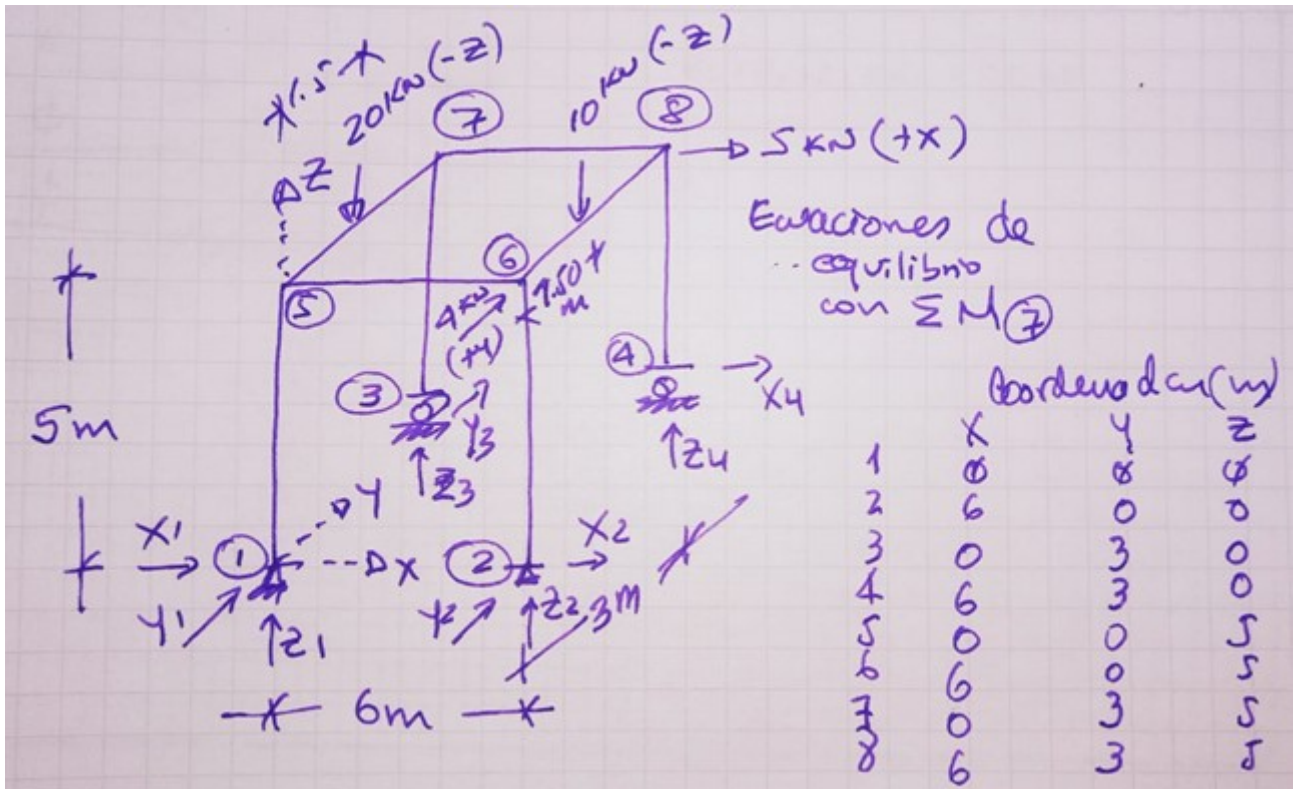 1.5
20 KN (-Z)
10 KN (-Z)
7
8
5 KN (+X)
Z
Ecuaciones de
equilibrio
con Σ M 7
5
6
4 KN
(+Y)
1.50
m
3
4
X4
Y3
Z3
Z4
5m
Y
X1
1
X
2
X2
Y1
Z1
Y2
Z2
3m
6m
Coordenadas (m)
X Y Z
1 0 0 0
2 6 0 0
3 0 3 0
4 6 3 0
5 0 0 5
6 6 0 5
7 0 3 5
8 6 3 5